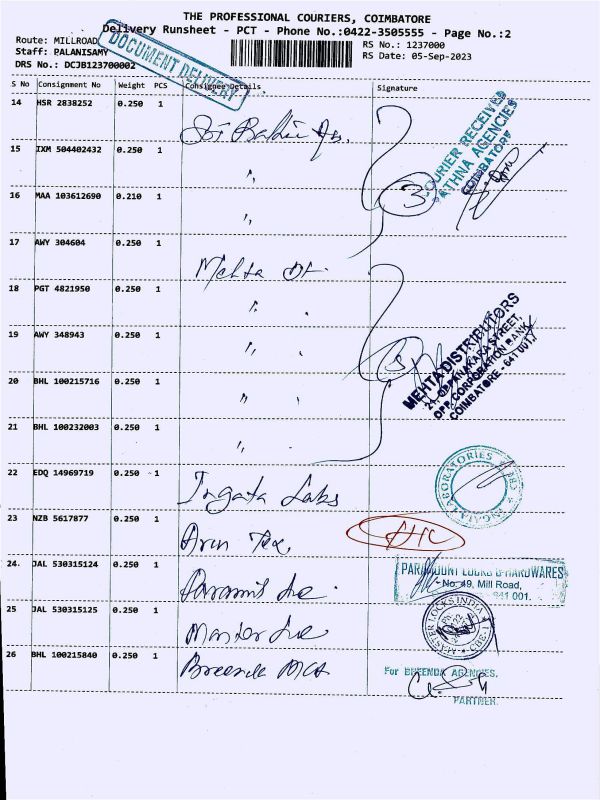 THE PROFESSIONAL COURIERS, COIMBATORE
Delivery Runsheet - PCT - Phone No.:0422-3505555 - Page No.:2
Route: MILLROAD
RS No.: 1237000
Staff: PALANISAMY
RS Date: 05-Sep-2023
DRS No.: DCJB123700002
DOCUMENT DELIVERY
S No Consignment No Weight PCS Consignee Details Signature
14 HSR 2838252 0.250 1
COURIER RECEIVED
AGENCIES
COIMBATORE
15 IXM 504402432 0.250 1 "
16 MAA 103612690 0.210 1 "
3
17 AWY 304604 0.250 1 Mehta Dt.
18 PGT 4821950 0.250 1 "
19 AWY 348943 0.250 1 "
5
MEHTA DISTRIBUTORS
21, OPPANAKARA STREET,
OPP. CORPORATION BANK,
COIMBATORE - 641 001.
20 BHL 100215716 0.250 1 "
21 BHL 100232003 0.250 1 "
22 EDQ 14969719 0.250 1 Ingata Labs
LABORATORIES
23 NZB 5617877 0.250 1 Arun Tex
24. JAL 530315124 0.250 1
PARAMOUNT LOCKS & HARDWARES
No: 49, Mill Road,
641 001.
25 JAL 530315125 0.250 1 Master
MASTER LOCKS INDIA
CBE-1
26 BHL 100215840 0.250 1
For BREENDA AGENCIES.
PARTNER.